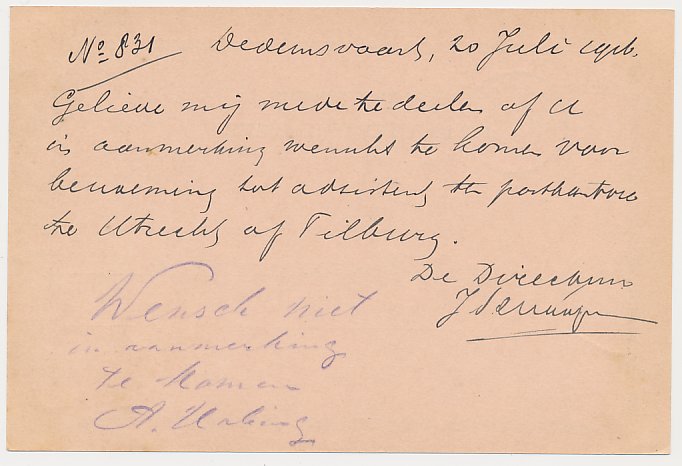 No 831 Dedemsvaart, 20 Juli 1916.
Gelieve mij mede te deelen of U
in aanmerking wenscht te komen voor
benoeming tot adsistent ten postkantore
te Utrecht of Tilburg.
De Directeur
Wensch niet
in aanmerking
te komen
A.